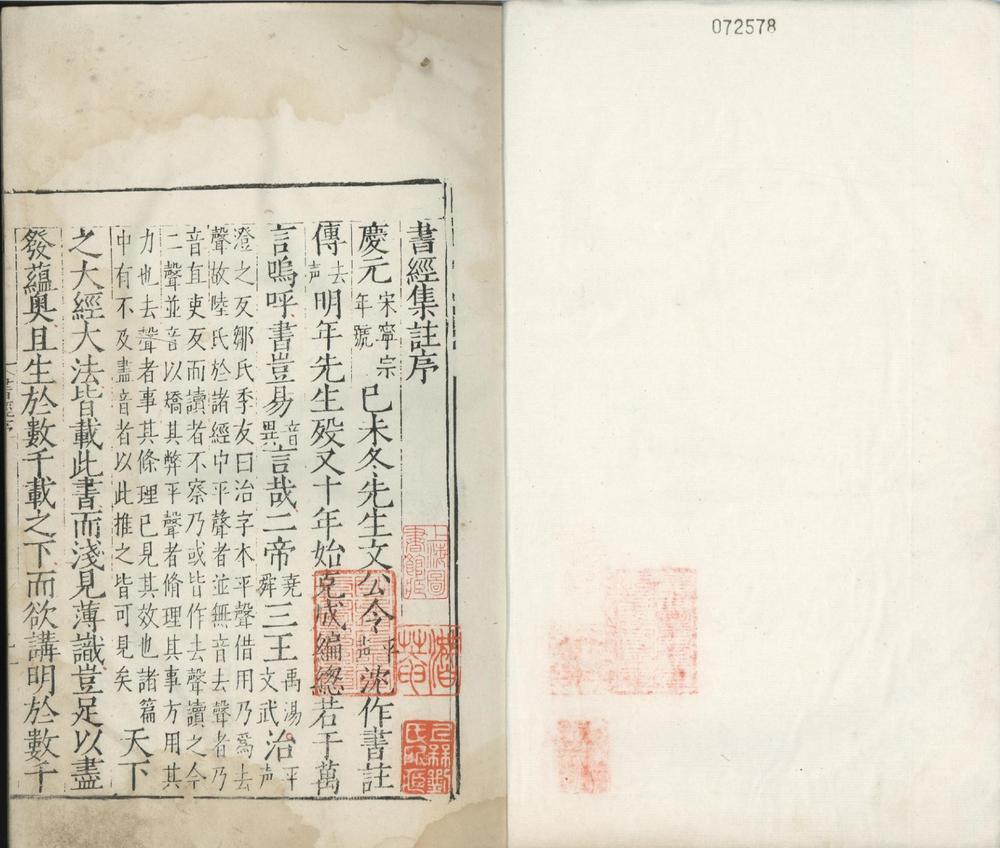 072578
書經集註序
慶元宋寧宗年號已未冬先生文公令平声沈作書註
傳去声明年先生殁又十年始克成編總若干萬
言嗚呼書豈易音異言哉二帝堯舜三王禹湯文武治平声
澄之反鄒氏季友曰治字本平聲借用乃爲去
聲故陸氏於諸經中平聲者並無音去聲者乃
音直吏反而讀者不察乃或皆作去聲讀之今
二聲並音以矯其弊平聲者脩理其事方用其
力也去聲者事其條理已見其效也諸篇
中有不及盡音者以此推之皆可見矣
天下
之大經大法皆載此書而淺見薄識豈足以盡
發蘊奧且生於數千載之下而欲講明於數千
上海圖書館藏